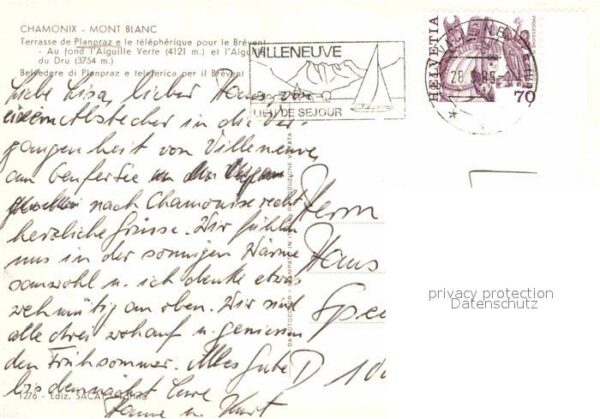 CHAMONIX - MONT BLANC
Terrasse de Planpraz e le téléphérique pour le Brévent
- Au fond l'Aiguille Verte (4121 m.) et l'Aiguille
du Dru (3754 m.)
Belvedere di Planpraz e teleferica per il Brévent
VILLENEUVE
LIEU DE SEJOUR
HELVETIA
70
Liebe Lisa, lieber Hans, von
einem Abstecher in die Ver-
gangenheit von Villeneuve
am Genfersee
nach Chamonix recht
herzliche Grüsse. Wir fühlen
uns in der sonnigen Wärme
sauwohl u. ich denke etwas
wehmütig an oben. Wir sind
alle drei wohlauf u. geniessen
den Frühsommer. Alles Gute
bis demnächst Eure
Hanne u. Kurt
Herrn
Hans
Spe
D 10
1276 - Ediz. SACAT
privacy protection
Datenschutz